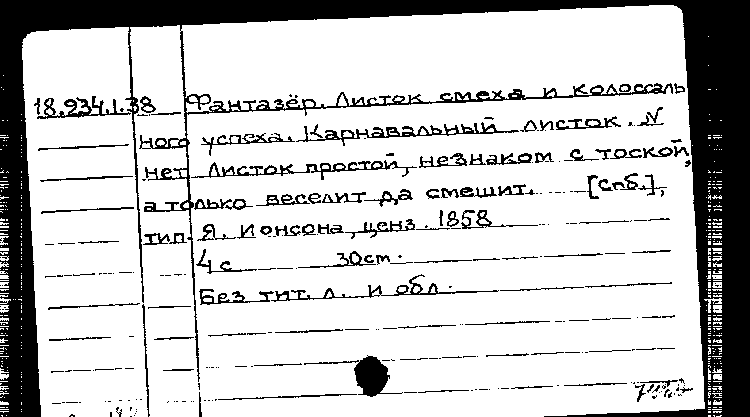 18.234.1.38 Фантазёр. Листок смеха и колоссаль
ного успеха. Карнавальный листок. N
нет. Листок простой, незнаком с тоской,
а только веселит да смешит. [Спб.],
тип. Я. Ионсона, ценз. 1858
4 с 30cm.
Без тит. л. и обл.